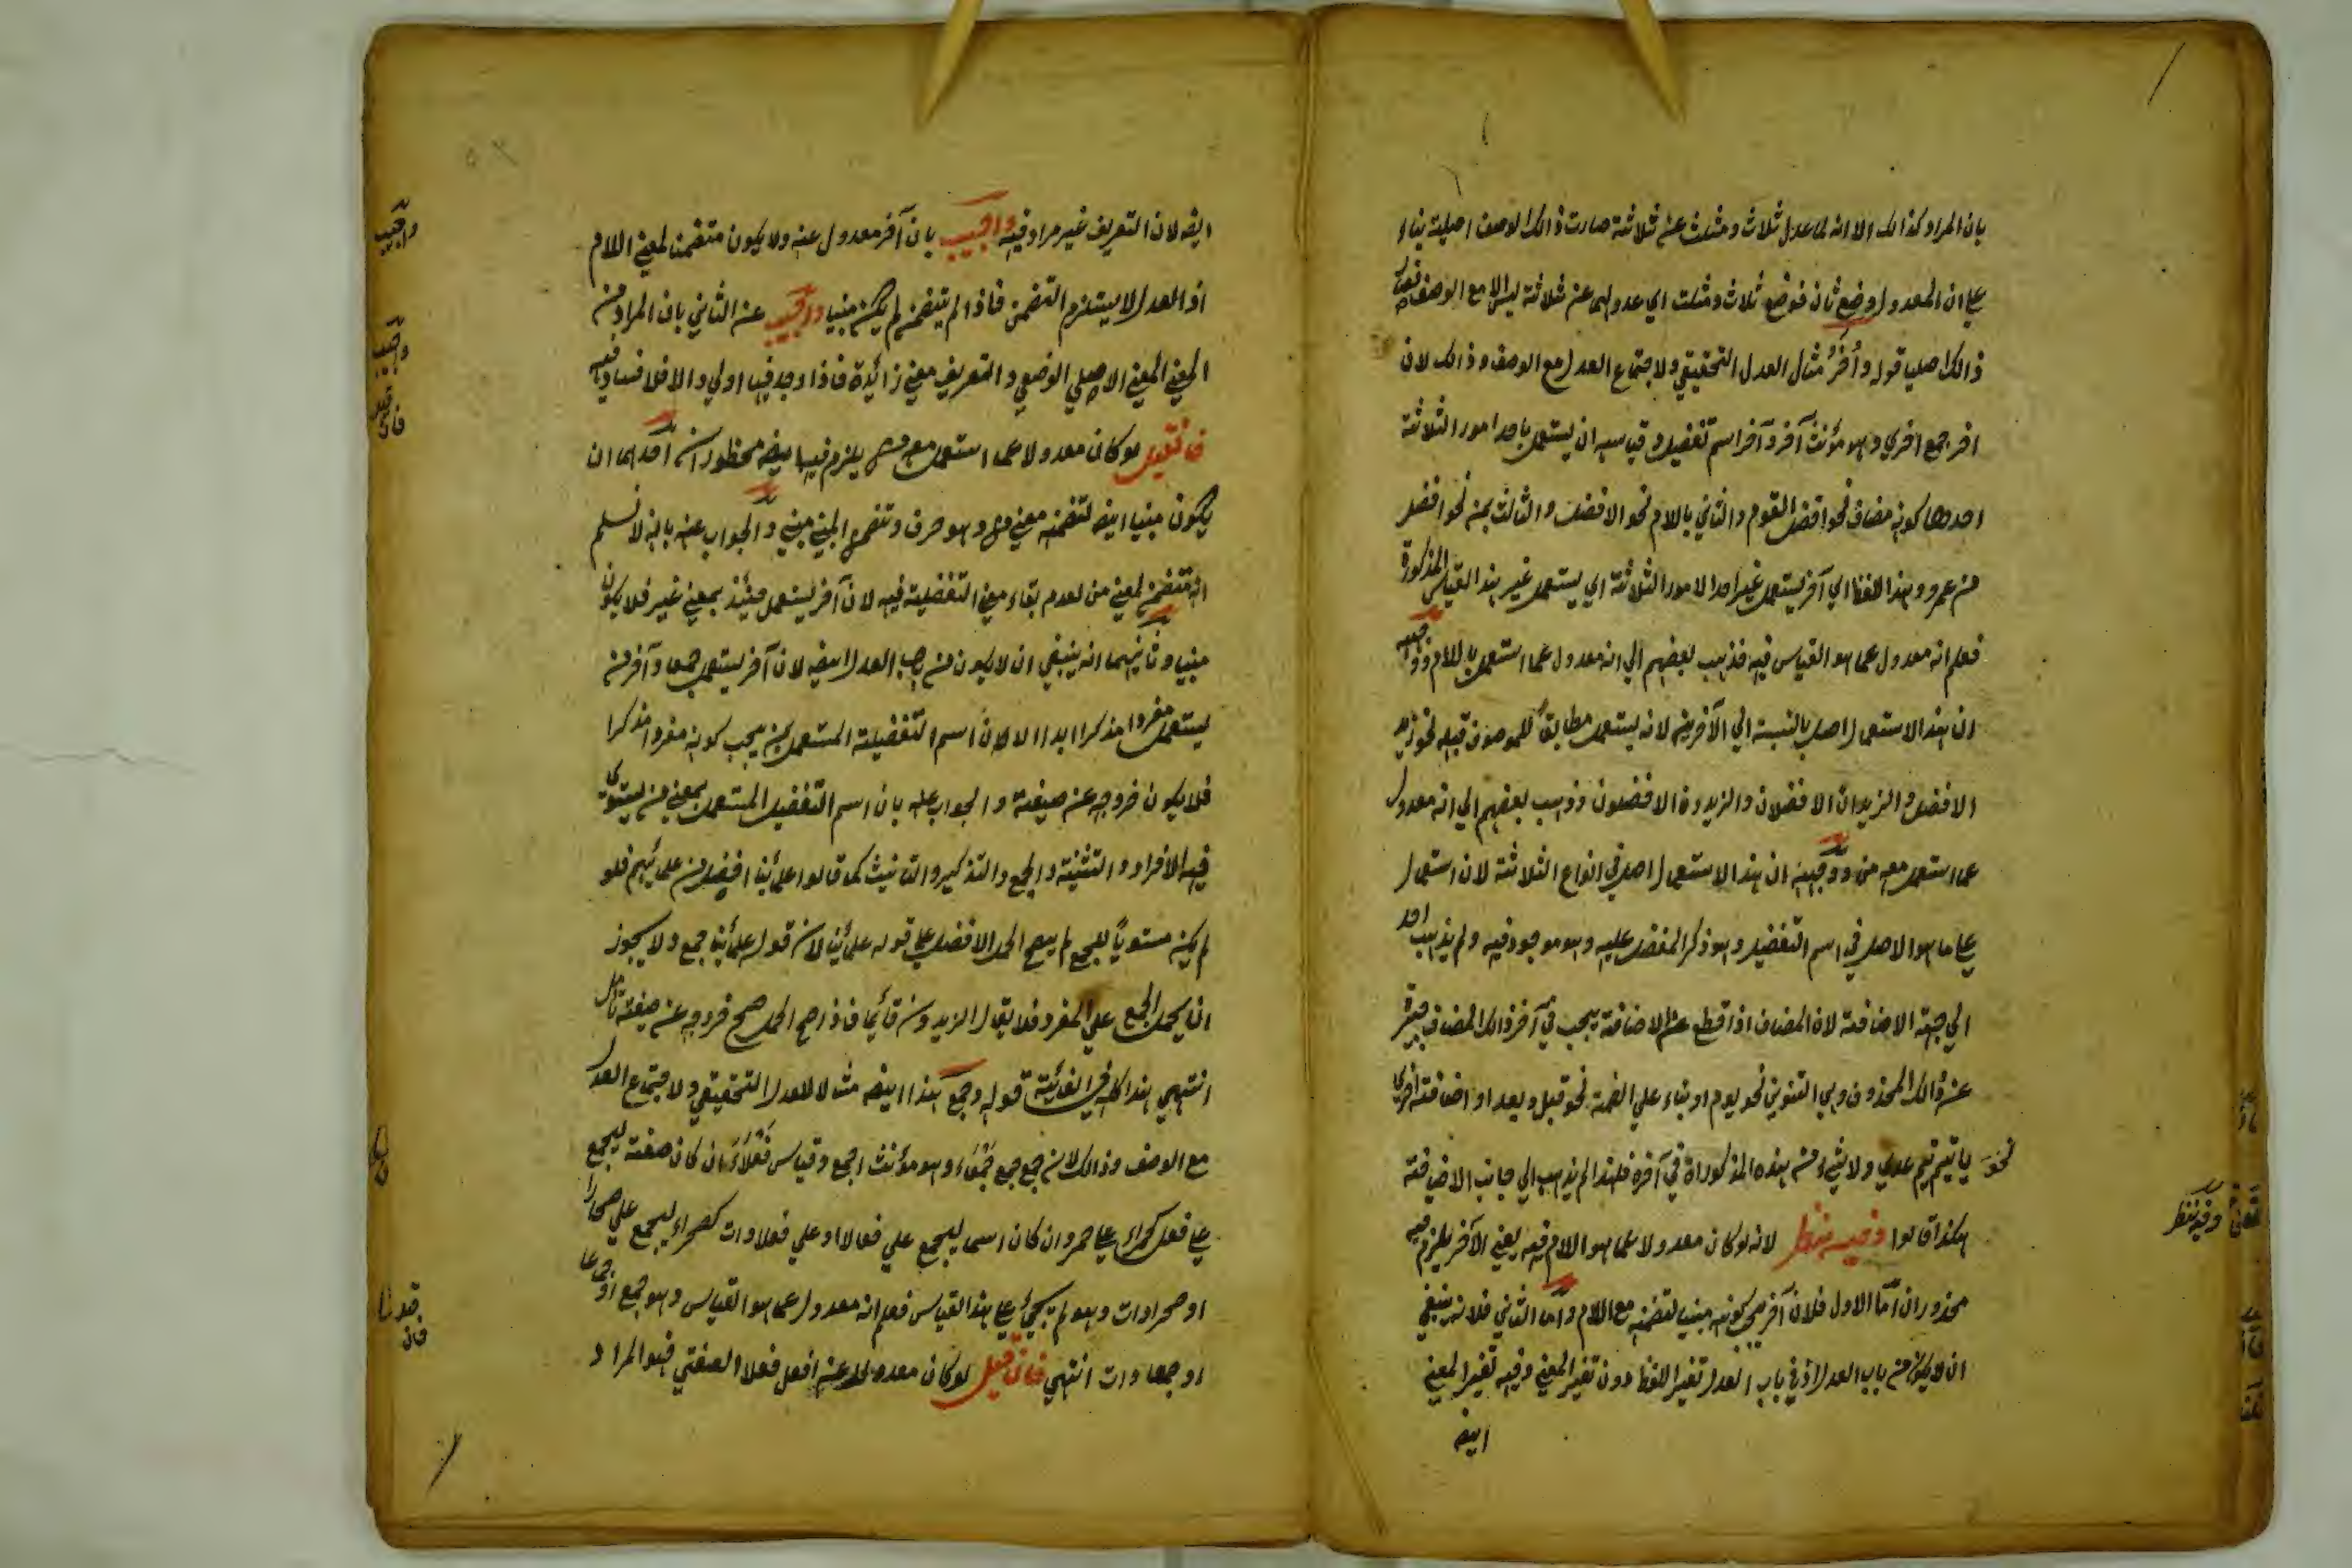 بان المراد كذالك الا انه لما عدل ثلاث و مثلث عن ثلاثة صارت ذالك الوصف اصلية بناء
علي ان المعدول وضع ثان فوضع ثلاث و مثلث اي عدولهما عن ثلاثة ليس الا مع الوصف
ذالك اصليا قوله و أُخَرُ مثال العدل التحقيقي ولاجتماع العدل مع الوصف و ذالك لان
اخر جمع اخري و هو مؤنث آخر و آخر اسم تفضيل و قياسه ان يستعمل باحد امور الثلاثة
احدها كونه مضاف نحو افضل القوم و الثاني باللام نحو الافضل و الثالث بمن نحو افضل
من عمرو و هذا اللفظ اي آخر يستعمل غير احد الامور الثلاثة اي يستعمل غير هذا القياس المذكورة
فعلم انه معدول عما هو القياس فيه فذهب بعضهم الي انه معدول عما استعمل باللام و وجهه
ان هذا الاستعمال اصل بالنسبة الي الآخرين لانه يستعمل مطابقا للموصوف قبله نحو زيد
الافضل و الزيدان الافضلان و الزيدون الافضلون و ذهب بعضهم الي انه معدول
عما استعمل معه من و وجهه ان هذا الاستعمال اصل في انواع الثلاثة لان استعمال
علي ما هو الاصل في اسم التفضيل و هو ذكر المفضل عليه و هو موجود فيه و لم يذهب احد
الي جهة الاضافة لان المضاف اذا قطع عن الاضافة يجب في آخر ذالك المضاف
عن ذالك المحذوف و هي التنوين نحو يوم او بناء علي الضمة نحو قبل و بعد او اضافة اخري
نحو يا تيم تيم عدي و لا شيء من هذه المذكوراة في آخره فلهذا لم يذهب الي جانب الاضافة
هكذا قالوا و فيه نظر لانه لو كان معدولا عما هو اللام فيه يعني الآخر يلزم فيه
محذوران اما الاول فلان آخر كونه مبنيا لتضمنه مع اللام و اما الثاني فلانه ينبغي
ان لا يكون من باب العدل اذ في باب العدل تغير اللفظ دون تغير المعني و فيه تغير المعني
ايضه
و فيه نظر
ايضه لان التعريف غير مراد فيه و اجيب بان آخر معدول عنه و لا يكون متضمنا لمعني اللام
اذ العدل لا يستلزم التضمن فاذا لم يتضمن لم يكن مبنيا و اجيب عن الثاني بان المراد من
المعني المعني الاصلي الوضعي و التعريف معني زائدة فاذا وجد فيها اولي و الا فلا فساد فيه
فان قيل لو كان معدولا عما استعمل معه من يلزم فيه ايضه محظوران احدهما ان
يكون مبنيا ايضه لتضمنه معني من و هو حرف و تضمن المبني مبني و الجواب عنه بانه لا نسلم
انه متضمن لمعني من لعدم بقاء معني التفضيلة فيه لان آخر يستعمل حينئذ بمعني غير فلا يكون
مبنيا و ثانيهما انه ينبغي ان لا يكون من باب العدل ايضه لان آخر يستعمل جمعا و آخر من
يستعمل مفردا مذكرا ابدا الا لان اسم التفضيلة المستعمل بمن يجب كونه مفردا مذكرا
فلا يكون خروجه عن صيغة و الجواب عليه بان اسم التفضيل المستعمل بمعني من يستوي
فيه الافراد و التثنية و الجمع و التذكير و التانيث كما قالوا علمائنا افضل من علمائهم فلو
لم يكن مستويا للجمع لم يصح الحمل الافضل علي قوله علمائنا لان قوله علمائنا جمع و لا يجوز
ان يحمل الجمع علي المفرد فلا يقال الزيدون قائما فاذا صح الحمل صح خروجه عن صيغة تأمل
انتهي هذا كله في الغرئية قوله و جمع هذا ايضه مثالا للعدل التحقيقي و لاجتماع العدل
مع الوصف و ذالك لان جمع جمع جَمْعَاء و هو مؤنث اجمع و قياس فَعْلَاءَ ان كان صفة يجمع
علي فعل كحمراء علي حمر و ان كان اسما يجمع علي فعالا او علي فعلاوات كصحراء يجمع علي صحارا
او صحراوات و هو لم يجئ علي هذا القياس فعلم انه معدول عما هو القياس و هو جمع او جماعا
او جمعاوات انتهي فان قيل لو كان معدولا عن افعل فعلا الصفتي فهو المراد
و اجيب
و اجيب
فان قيل
قلنا
فان